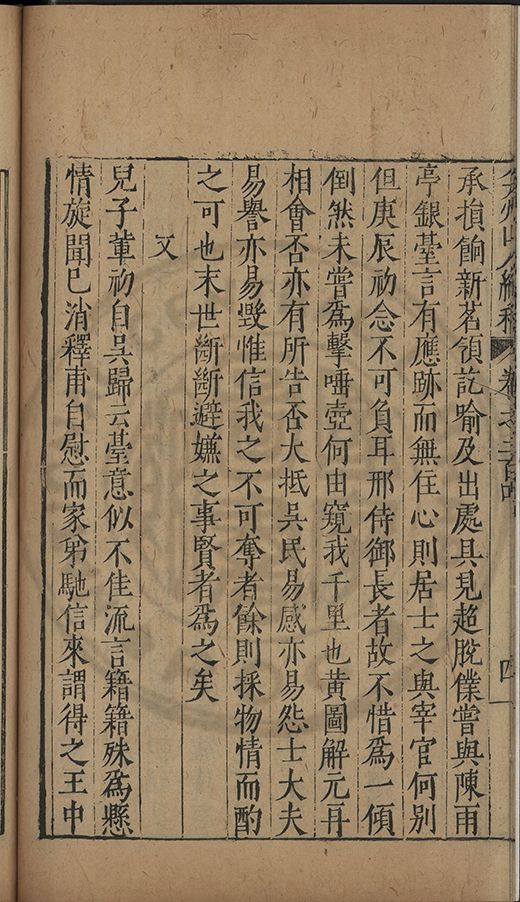 弇州山人續稿 卷之二百 四
承損餉新茗領訖喻及出處具見超脫僕嘗與陳雨
亭銀臺言有應跡而無住心則居士之與宰官何別
但庚辰初念不可負耳邢侍御長者故不惜爲一傾
倒然未嘗爲擊唾壺何由窺我千里也黃圖解元再
相會否亦有所告否大抵吳民易感亦易怨士大夫
易譽亦易毀惟信我之不可奪者餘則採物情而酌
之可也末世斷斷避嫌之事賢者爲之矣
又
兒子輩初自吳歸云臺意似不佳流言籍籍殊爲懸
情旋聞已消釋甫自慰而家弟馳信來謂得之王中